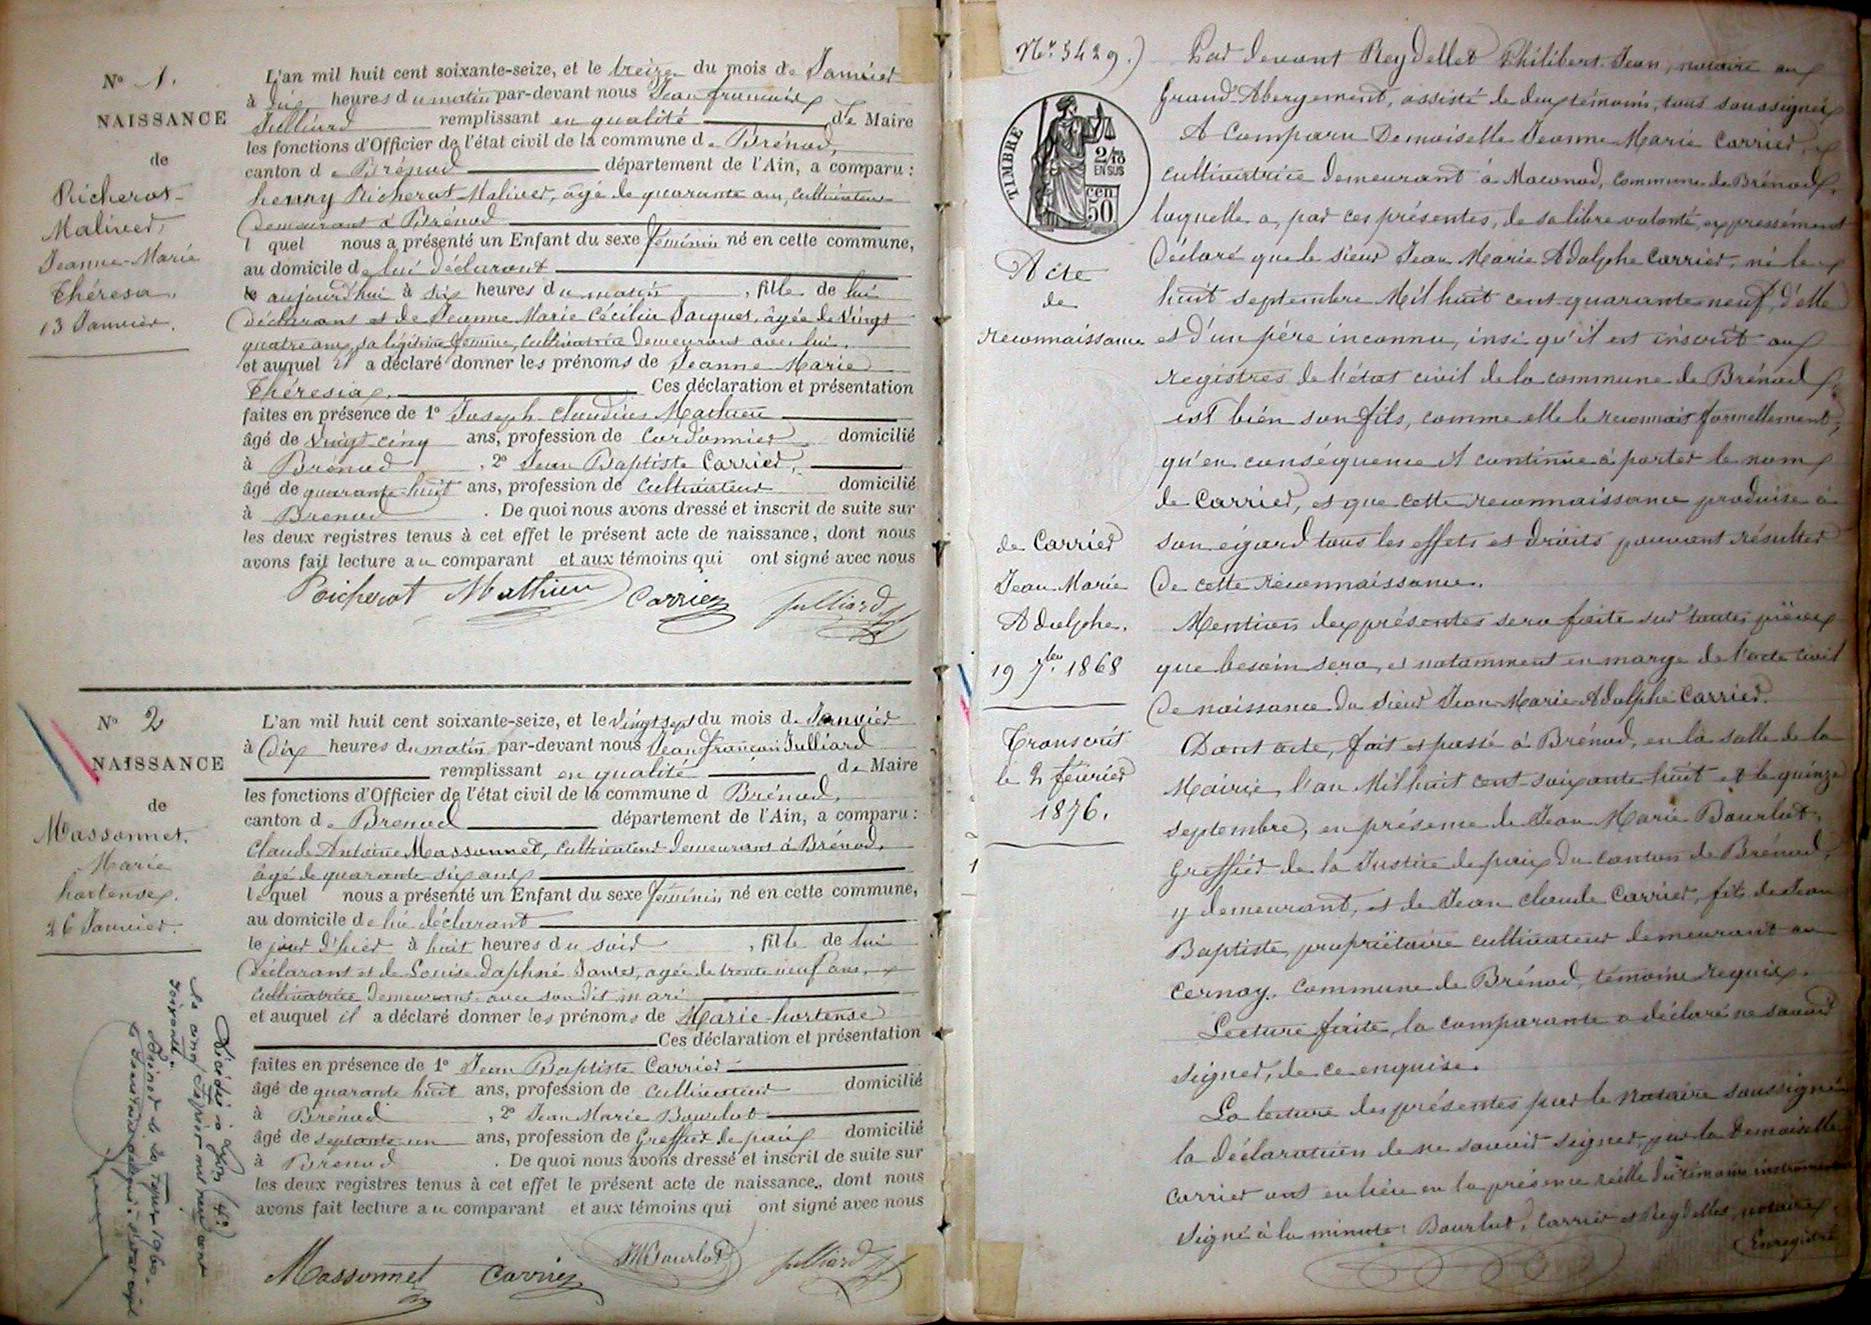 N° 1.
NAISSANCE
de
Richerot-
Malivert,
Jeanne-Marie
Thérésia.
13 Janvier.
L'an mil huit cent soixante-seize, et le treize du mois de Janvier
à dix heures du matin par-devant nous Jean françois
Julliard remplissant en qualité de Maire
les fonctions d'Officier de l'état civil de la commune de Brénod,
canton de Brénod département de l'Ain, a comparu :
henry Richerot-Malivert, âgé de quarante ans, cultivateur
demeurant à Brénod
lequel nous a présenté un Enfant du sexe féminin né en cette commune,
au domicile de lui déclarant
le aujourd'hui à six heures du matin, fille de lui
déclarant et de Jeanne Marie Cécilia Jacquet, âgée de vingt
quatre ans, sa légitime femme, cultivatrice demeurant avec lui.
et auquel il a déclaré donner les prénoms de Jeanne Marie
Thérésia. Ces déclaration et présentation
faites en présence de 1° Joseph claudius Mathieu
âgé de vingt cinq ans, profession de Cordonnier domicilié
à Brénod, 2° Jean Baptiste Carrier,
âgé de quarante-huit ans, profession de Cultivateur domicilié
à Brénod. De quoi nous avons dressé et inscrit de suite sur
les deux registres tenus à cet effet le présent acte de naissance, dont nous
avons fait lecture au comparant et aux témoins qui ont signé avec nous
Richerot Mathieu Carrier Julliard
N° 2
NAISSANCE
de
Massonnet.
Marie
hortense.
26 Janvier.
L'an mil huit cent soixante-seize, et le vingt sept du mois de Janvier
à dix heures du matin par-devant nous Jean françois Julliard
remplissant en qualité de Maire
les fonctions d'Officier de l'état civil de la commune d Brénod,
canton de Brénod département de l'Ain, a comparu :
Claude Antoine Massonnet, cultivateur demeurant à Brénod,
âgé de quarante six ans
lequel nous a présenté un Enfant du sexe féminin né en cette commune,
au domicile de lui déclarant
le jour d'hier à huit heures du soir, fille de lui
déclarant et de Louise daphné Jantet, agée de trente neuf ans,
cultivatrice demeurant avec son dit mari
et auquel il a déclaré donner les prénoms de Marie-hortense
Ces déclaration et présentation
faites en présence de 1° Jean Baptiste Carrier
âgé de quarante huit ans, profession de Cultivateur domicilié
à Brénod, 2° Jean Marie Bourbut
âgé de septante-un ans, profession de Greffier de paix domicilié
à Brénod. De quoi nous avons dressé et inscrit de suite sur
les deux registres tenus à cet effet le présent acte de naissance, dont nous
avons fait lecture au comparant et aux témoins qui ont signé avec nous
Massonnet Carrier Julliard
Décédée à Lyon (4°)
le cinq Février mil neuf cent
soixante.
Brénod le Février 1960.
N° 5429.)
TIMBRE
2/10
EN SUS
50
cen
Acte
de
reconnaissance
de Carrier
Jean Marie
Adolphe.
19 7bre 1868
Transcrit
le 2 février
1876.
1
Par devant Reydellet Philibert Jean, notaire au
Grand'Abergement, assisté de deux témoins, tous soussignés
A comparu Demoiselle Jeanne Marie Carrier,
cultivatrice demeurant à Maconod, commune de Brénod,
laquelle a, par ces présentes, de sa libre volonté, expressément
Déclaré que le sieur Jean Marie Adolphe Carrier, né le
huit septembre Mil huit cent quarante neuf, d'elle
et d'un père inconnu, insi qu'il est inscrit aux
registres de l'état civil de la commune de Brénod,
est bien son fils, comme elle le reconnait formellement,
qu'en conséquence il continue à porter le nom
de Carrier, et que cette reconnaissance produise à
son égard tous les effets et droits pouvant résulter
De cette reconnaissance.
Mention des présentes sera faite sur toutes pièces
que besoin sera, et notamment en marge de l'acte civil
De naissance du sieur Jean-Marie-Adolphe Carrier.
Dont acte, fait et passé à Brénod, en la salle de la
Mairie, l'an Mil huit cent soixante huit et le quinze
septembre, en présence de Jean Marie Bourbut,
Greffier de la Justice de paix du canton de Brénod,
y demeurant, et de Jean claude Carrier, fils de Jean
Baptiste propriétaire cultivateur demeurant au
Cernay, commune de Brénod, témoins requis.
Lecture faite, la comparante a déclaré ne savoir
signer, de ce enquise.
La lecture des présentes par le notaire soussigné
la déclaration de ne savoir signer par la Demoiselle
Carrier ont eu lieu en la présence réelle des témoins instrumentaires
Signé à la minute: Bourbut, Carrier et Reydellet, notaire,
Enregistré